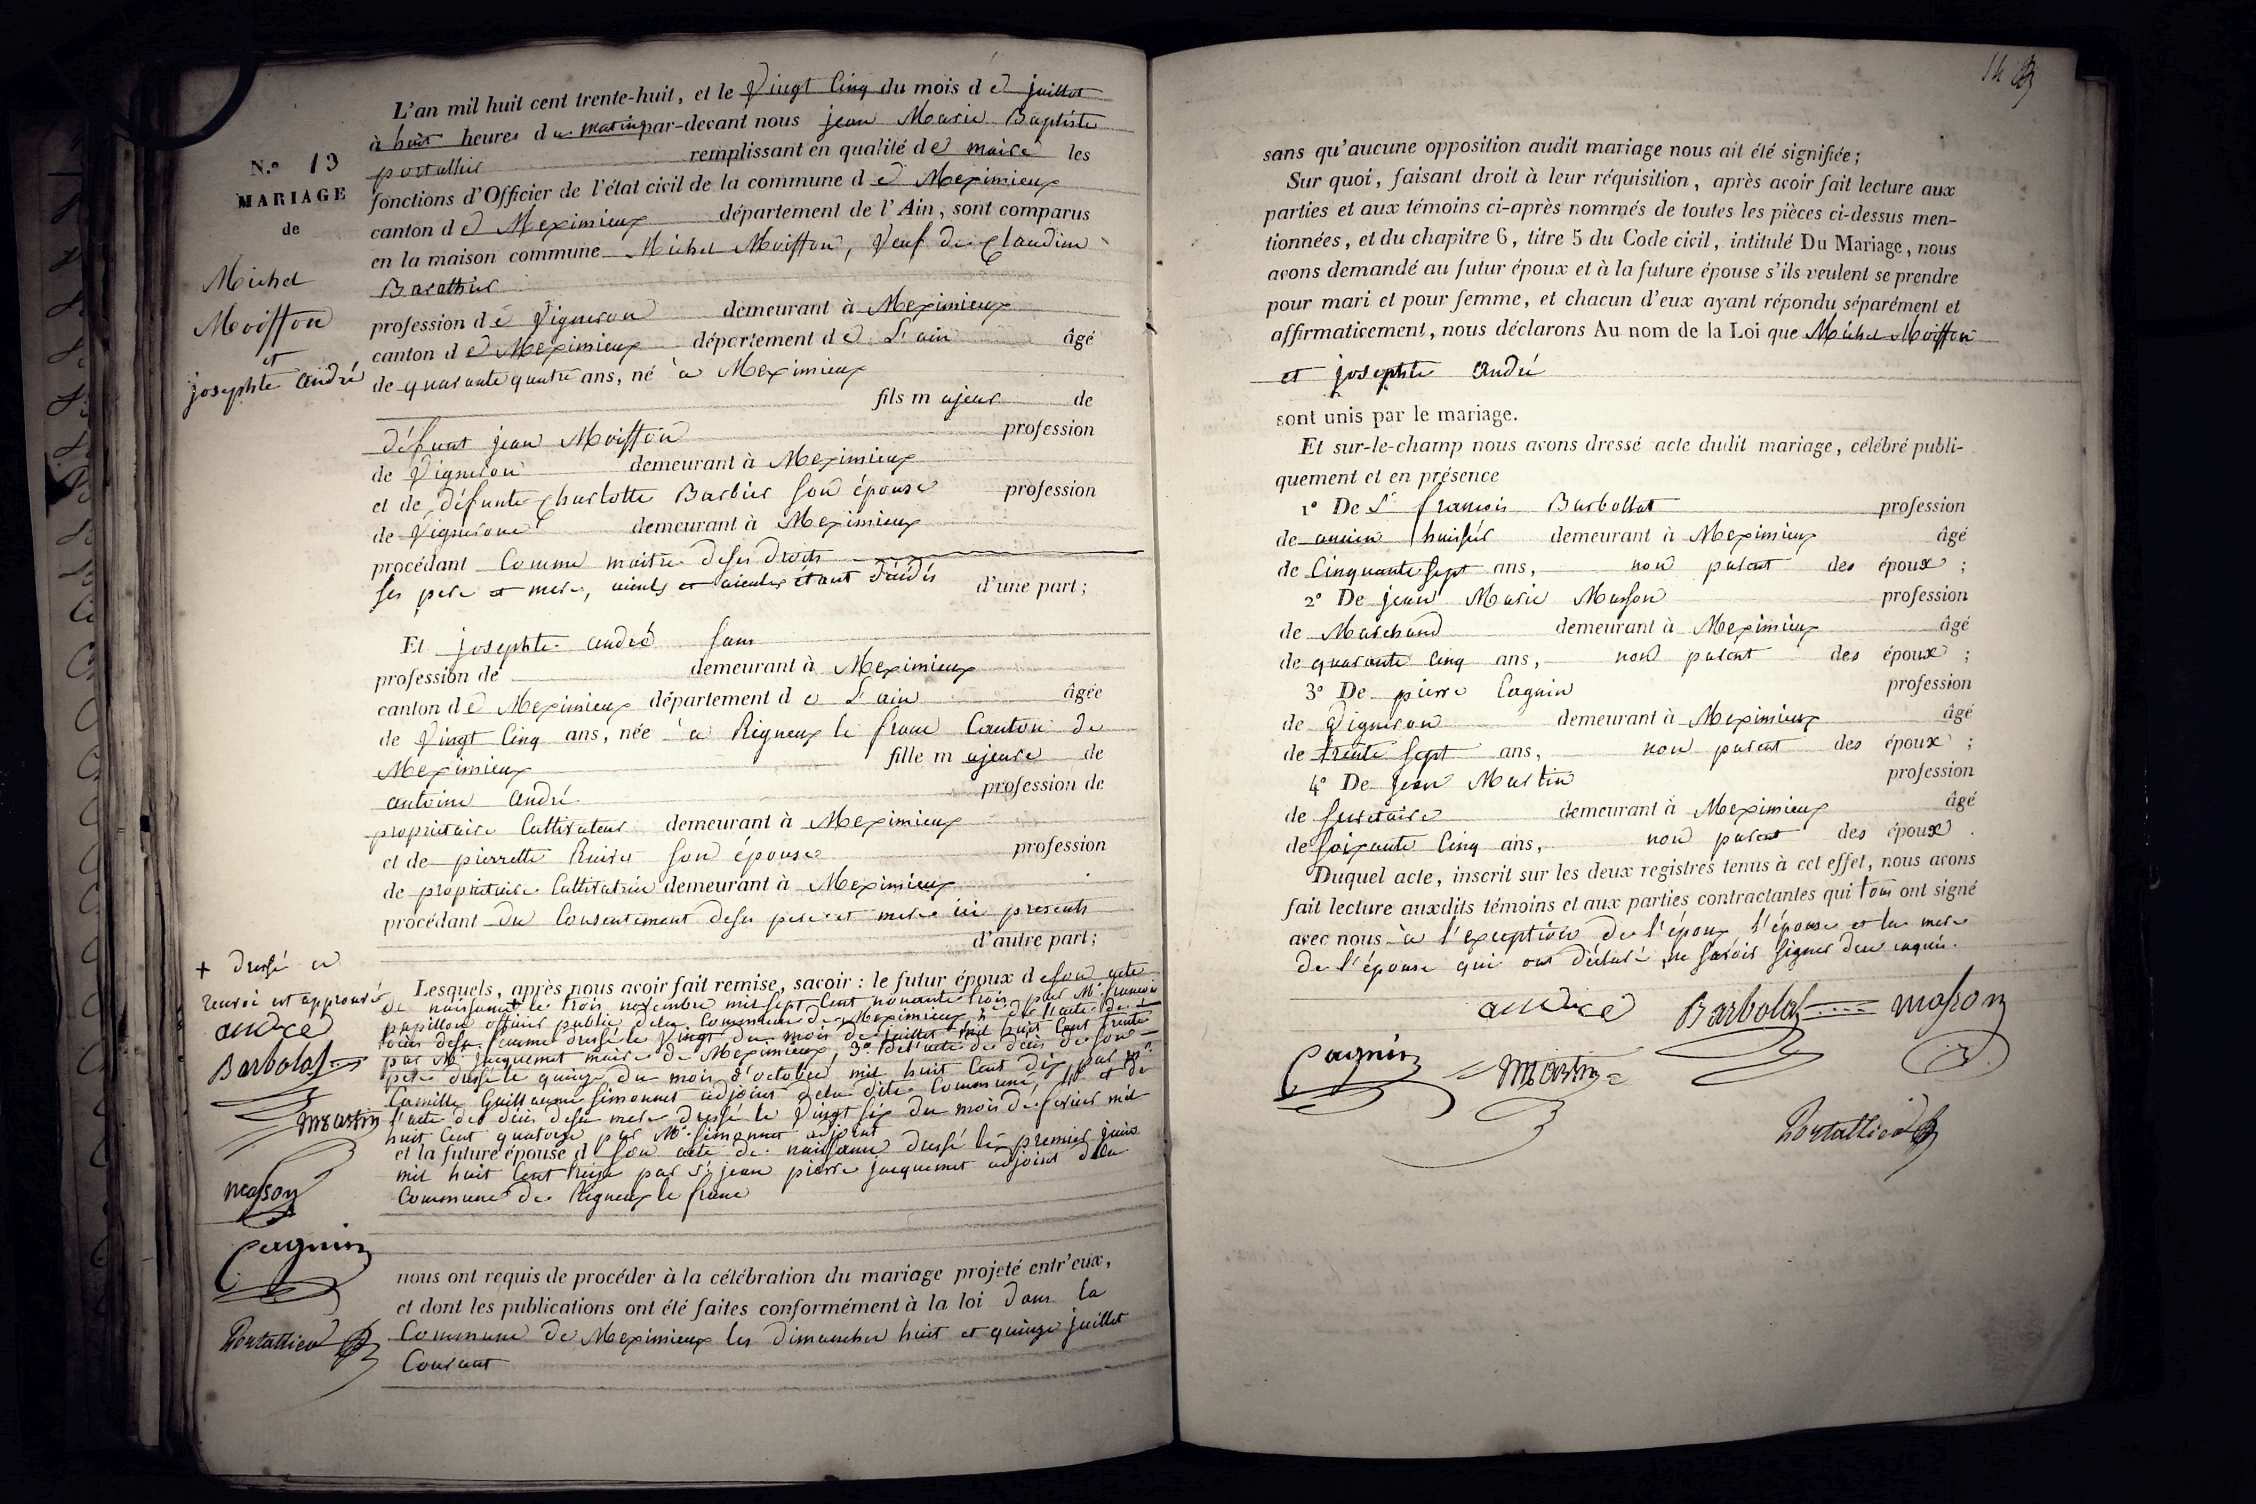 N.o 13
MARIAGE
de
Michel
Moiffon
et
josephte andré
L'an mil huit cent trente-huit, et le Vingt Cinq du mois d e juillet
à huit heures du matin par-devant nous jean Marie Baptiste
portallier remplissant en qualité de maire les
fonctions d'Officier de l'état civil de la commune d e Meximieux
canton d e Meximieux département de l'Ain, sont comparus
en la maison commune Michel Moiffon, Veuf de Claudine
Barathier
profession d e Vigneron demeurant à Meximieux
canton d e Meximieux département d e L'ain âgé
de quarante quatre ans, né à Meximieux
fils majeur de
défunt jean Moiffon profession
de Vigneron demeurant à Meximieux
et de défunte Charlotte Barbier son épouse profession
de Vigneronne demeurant à Meximieux
procédant Comme maitre de ses droits
ses pere et mere, aieuls et aieules étant décédés d'une part;
Et josephte andré sans
profession de demeurant à Meximieux
canton d e Meximieux département d e L'ain âgée
de Vingt Cinq ans, née à Rigneux le franc Canton de
Meximieux fille majeure de
antoine andré profession de
propriétaire Cultivateur demeurant à Meximieux
et de pierrette son épouse profession
de propriétaire Cultivatrice demeurant à Meximieux
procédant du Consentement de ses pere et mere ici presents
d'autre part;
Lesquels, après nous avoir fait remise, savoir : le futur époux d e son acte
de naissance + le trois novembre mil sept Cent nonante trois par Mr francois
papillon officier public de la Commune de Meximieux, 2° de l'acte de
décès de sa femme dressé le Vingt du mois de juillet mil huit Cent trente
par Mr jacquemet maire de Meximieux, 3° de l'acte de décès de son
pere dressé le quinze du mois d'octobre mil huit Cent dix par Mr
Camille Guillaume Simonnet adjoint de la dite Commune, 4° et de
l'acte de décès de sa mere dressé le Vingt six du mois de fevrier mil
huit Cent quatorze par Mr Simonnet adjoint
et la future épouse d son acte de naissance dressé le premier juin
mil huit Cent treize par Sr jean pierre jacquemet adjoint de la
Commune de Rigneux le franc
nous ont requis de procéder à la célébration du mariage projeté entr'eux,
et dont les publications ont été faites conformément à la loi dans la
Commune de Meximieux les dimanches huit et quinze juillet
Courant
+ dressé ce
renvoi est approuvé
andré
Barbolat
Martin
Masson
Cagnin
Portallier
sans qu'aucune opposition audit mariage nous ait été signifiée;
Sur quoi, faisant droit à leur réquisition, après avoir fait lecture aux
parties et aux témoins ci-après nommés de toutes les pièces ci-dessus men-
tionnées, et du chapitre 6, titre 5 du Code civil, intitulé Du Mariage, nous
avons demandé au futur époux et à la future épouse s'ils veulent se prendre
pour mari et pour femme, et chacun d'eux ayant répondu séparément et
affirmativement, nous déclarons Au nom de la Loi que Michel Moiffon
et josephte andré
sont unis par le mariage.
Et sur-le-champ nous avons dressé acte dudit mariage, célébré publi-
quement et en présence
1° De Sr francois Barbollat profession
de ancien huissier demeurant à Meximieux âgé
de Cinquante Sept ans, non parent des époux ;
2° De jean Marie Masson profession
de Marchand demeurant à Meximieux âgé
de quarante Cinq ans, non parent des époux ;
3° De pierre Cagnin profession
de Vigneron demeurant à Meximieux âgé
de trente Sept ans, non parent des époux ;
4° De jean Martin profession
de Secretaire demeurant à Meximieux âgé
de Soixante Cinq ans, non parent des époux .
Duquel acte, inscrit sur les deux registres tenus à cet effet, nous avons
fait lecture auxdits témoins et aux parties contractantes qui tous ont signé
avec nous à l'exception de l'époux l'épouse et la mere
de l'épouse qui ont déclaré ne savoir signer de ce enquis.
andré Barbolat Masson
Cagnin Martin
Portallier